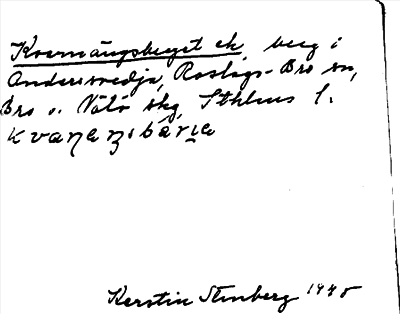 Kvarnängsberget ek, berg i
Andersvedja, Roslags-Bro sn,
Bro o. Vätö skg, Sthlms l.
Kerstin Stenberg 1940